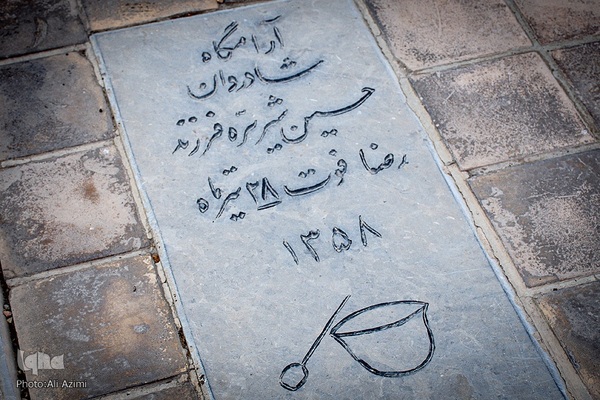 آرامگاه
شادروان
حسین شیربَره فرزند
رضا فوت ۲۸ تیرماه
۱۳۵۸
iqna
Photo:Ali Azimi